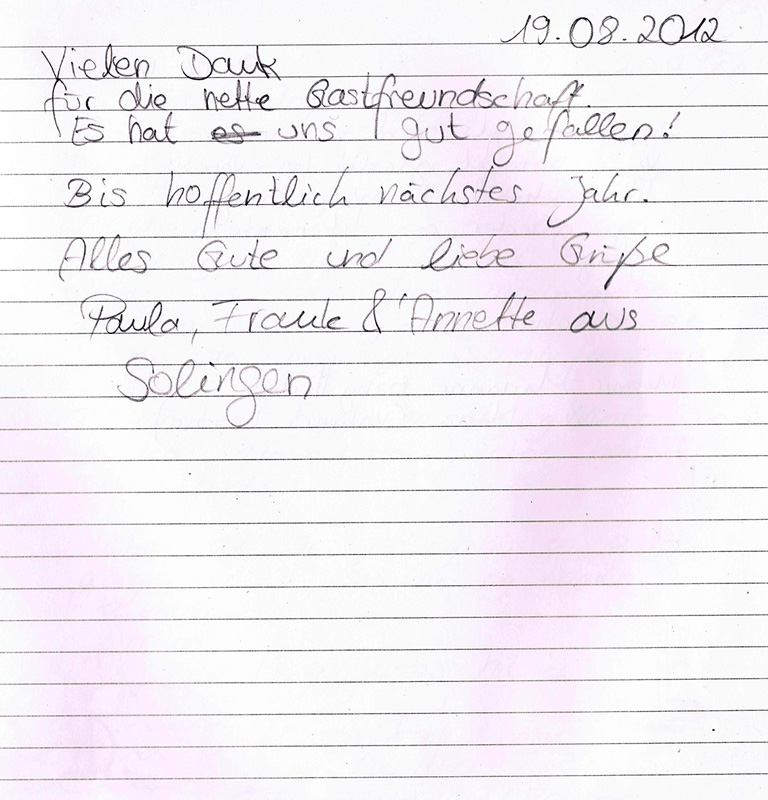 19.08.2012
Vielen Dank
für die nette Gastfreundschaft.
Es hat ~~es~~ uns gut gefallen!
Bis hoffentlich nächstes Jahr.
Alles Gute und liebe Grüße
Paula, Frauke & Annette aus
Solingen